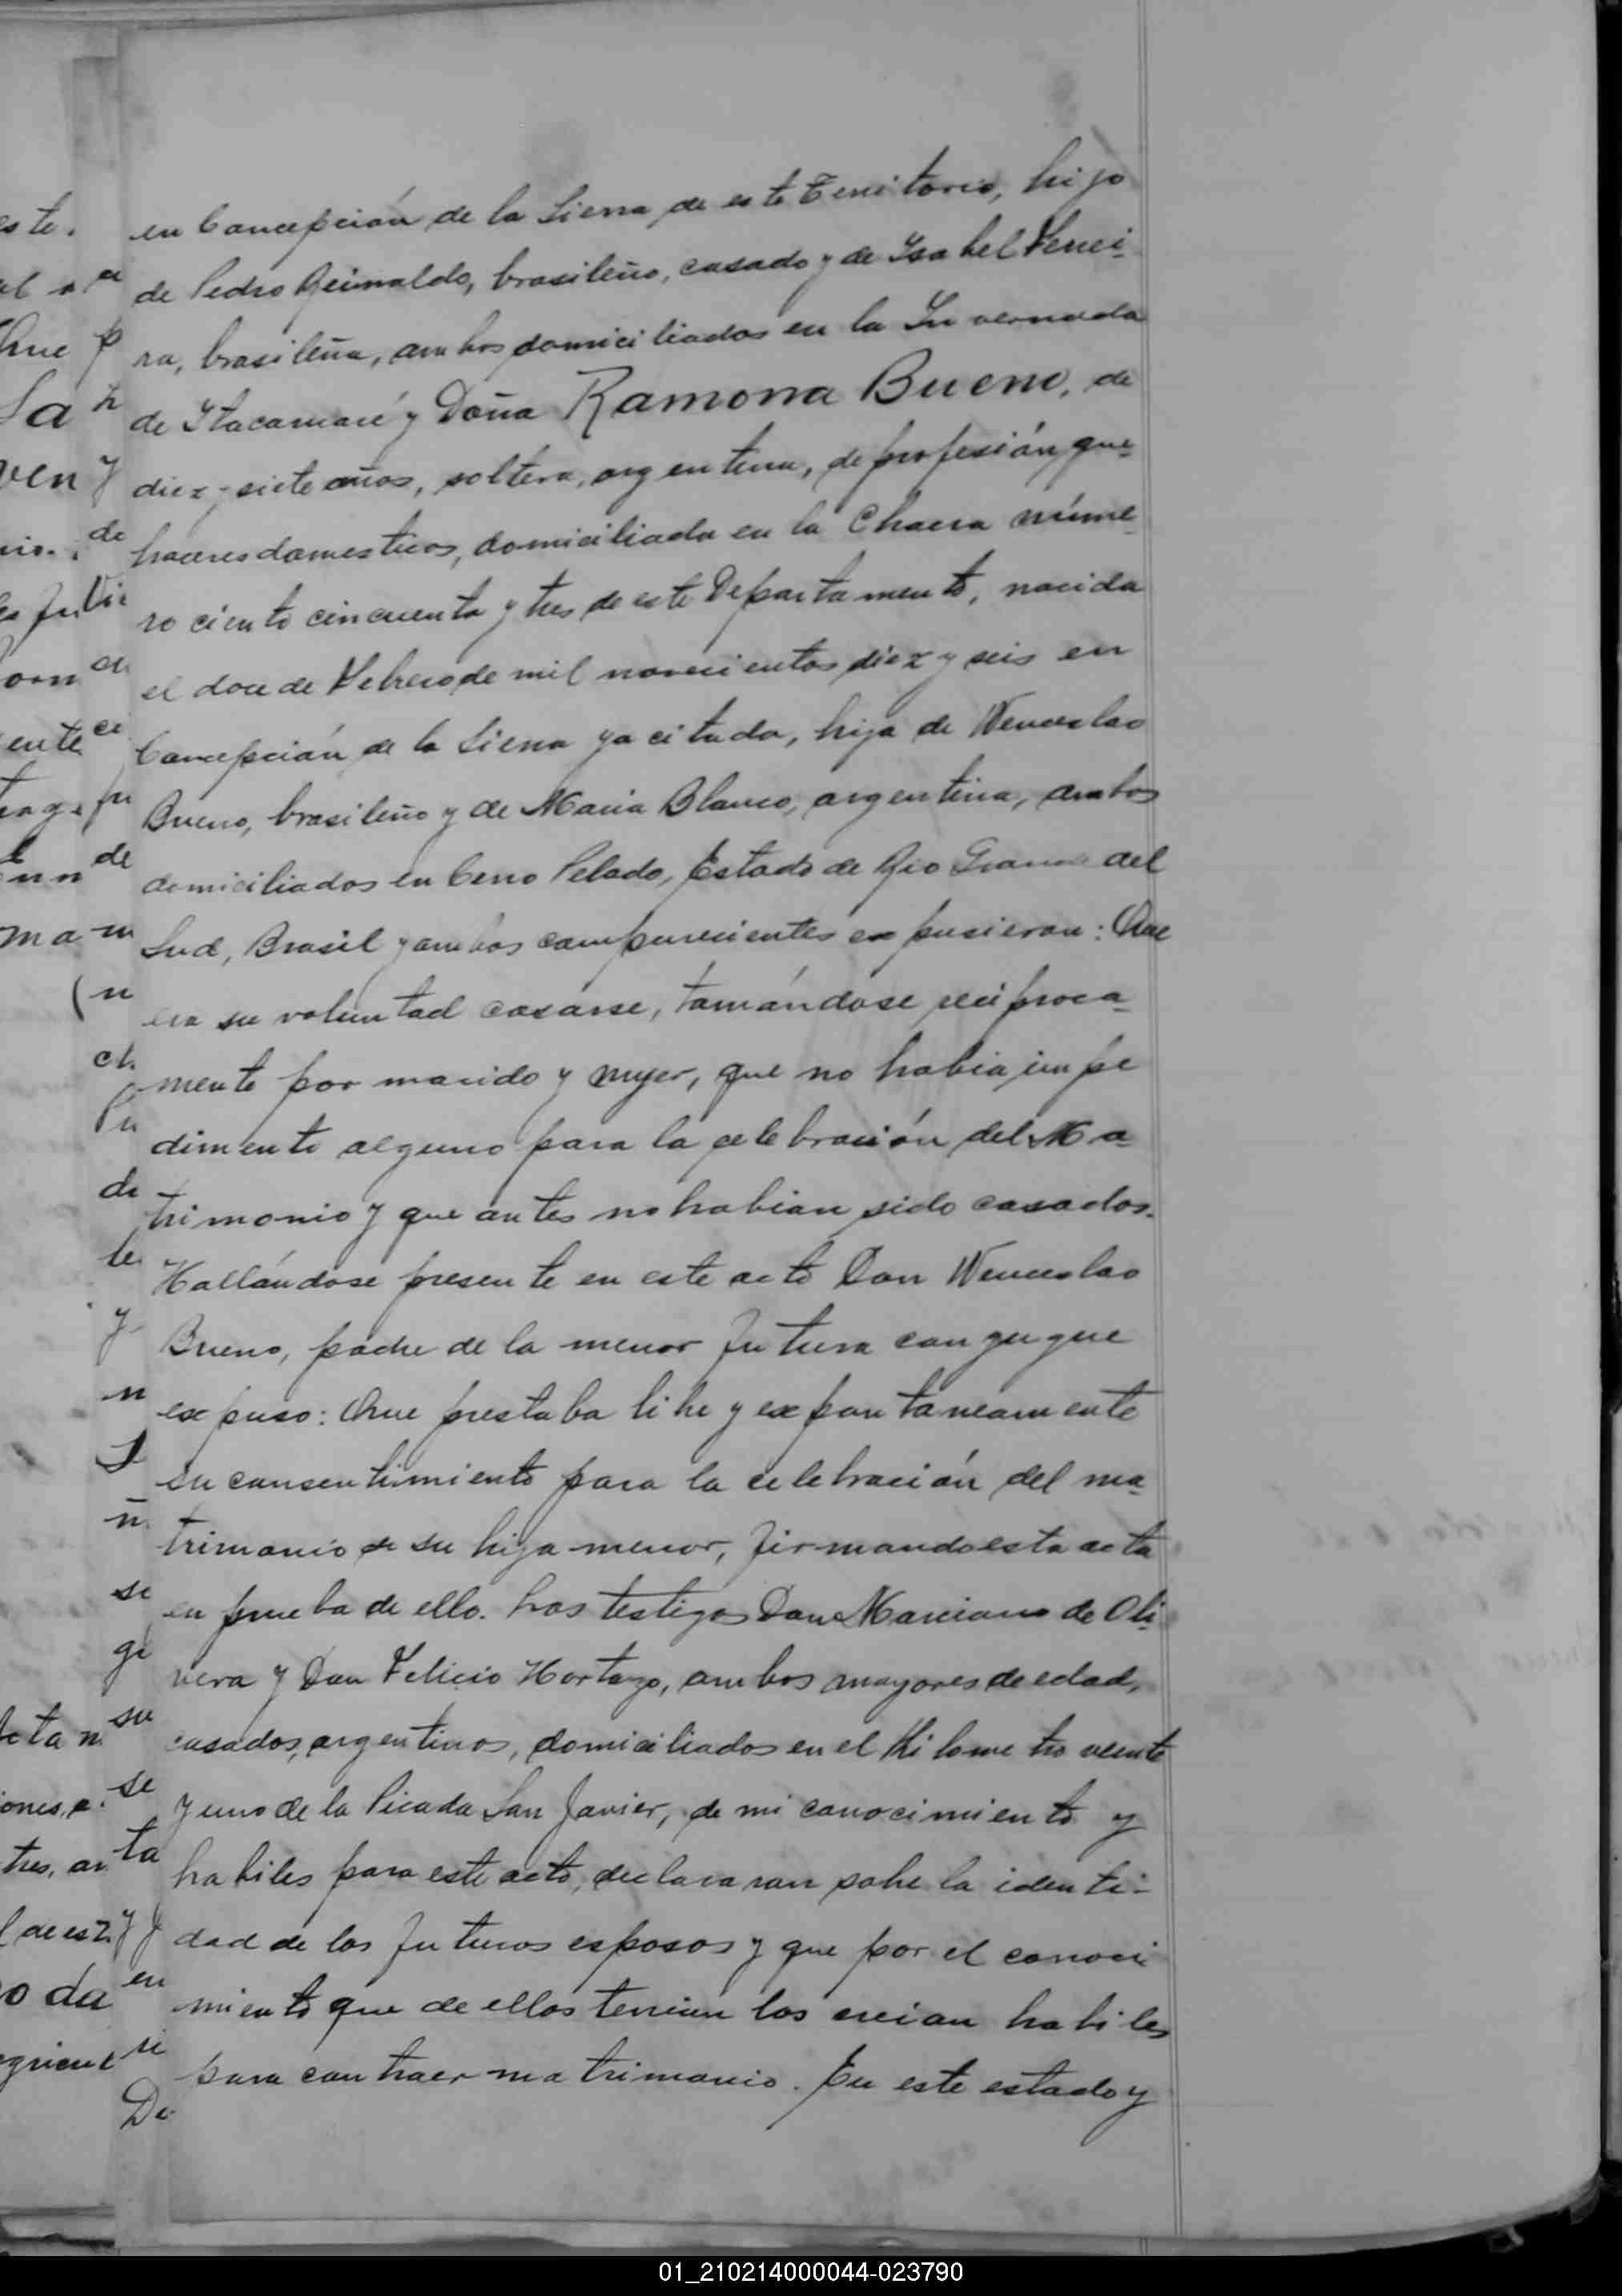 en Concepción de la Sierra de este Territorio, hijo
de Pedro Grimaldo, brasileño, casado y de Isabel Ferrei-
ra, brasileña, ambos domiciliados en la Invernada
de Itacaruaré y Doña Ramona Bueno, de
diez y siete años, soltera, argentina, de profesión que-
haceres domesticos, domiciliada en la Chacra núme-
ro ciento cincuenta y tres de este Departamento, nacida
el doce de Febrero de mil novecientos diez y seis en
Concepción de la Sierra ya citada, hija de Wenceslao
Bueno, brasileño y de Maria Blanco, argentina, ambos
domiciliados en Cerro Pelado, Estado de Rio Grande del
Sud, Brasil y ambos comparecientes expusieron: Que
era su voluntad casarse, tomándose reciproca-
mente por marido y mujer, que no habia impe
dimento alguno para la celebración del Ma-
trimonio y que antes no habian sido casados.
Hallándose presente en este acto Don Wenceslao
Bueno, padre de la menor futura conyugue
expuso: Que prestaba libre y expontaneamente
su consentimiento para la celebración del ma-
trimonio de su hija menor, firmando esta acta
en prueba de ello. Los testigos Don Marciano de Oli-
vera y Don Felicio Hortazo, ambos mayores de edad,
casados, argentinos, domiciliados en el Kilometro veinte
y uno de la Picada San Javier, de mi conocimiento y
habiles para este acto, declararon sobre la identi-
dad de los futuros esposos y que por el conoci
miento que de ellos tenian los creian habiles
para contraer matrimonio. En este estado y
01_210214000044-023790